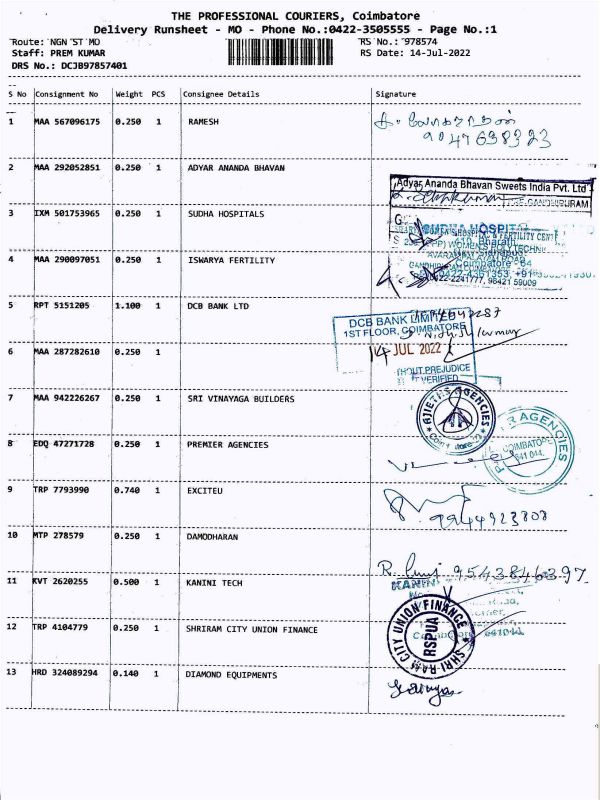 THE PROFESSIONAL COURIERS, Coimbatore
Delivery Runsheet - MO - Phone No.:0422-3505555 - Page No.:1
Route: NGN ST MO RS No.: 978574
Staff: PREM KUMAR RS Date: 14-Jul-2022
DRS No.: DCJB97857401
S No Consignment No Weight PCS Consignee Details Signature
1 MAA 567096175 0.250 1 RAMESH
9047638323
2 MAA 292052851 0.250 1 ADYAR ANANDA BHAVAN
Adyar Ananda Bhavan Sweets India Pvt. Ltd
GANDHIPURAM
3 IXM 501753965 0.250 1 SUDHA HOSPITALS
& FERTILITY CENT
WOMEN'S POLYTECHNIC
4 MAA 290097051 0.250 1 ISWARYA FERTILITY
0422-2241777, 98421 59009
5 RPT 5151205 1.100 1 DCB BANK LTD
DCB BANK LIMITED
1ST FLOOR, COIMBATORE
6 MAA 287282610 0.250 1
14 JUL 2022
THOUT PREJUDICE
VERIFIED
7 MAA 942226267 0.250 1 SRI VINAYAGA BUILDERS
AJIETHA AGENCIES
8 EDQ 47271728 0.250 1 PREMIER AGENCIES
R AGENCIES
COIMBATORE
641 044.
9 TRP 7793990 0.740 1 EXCITEU
9944923808
10 MTP 278579 0.250 1 DAMODHARAN
9543846397
11 KVT 2620255 0.500 1 KANINI TECH
KANINI
12 TRP 4104779 0.250 1 SHRIRAM CITY UNION FINANCE
SHRI RAM CITY UNION FINANCE
RSPUA
13 HRD 324089294 0.140 1 DIAMOND EQUIPMENTS